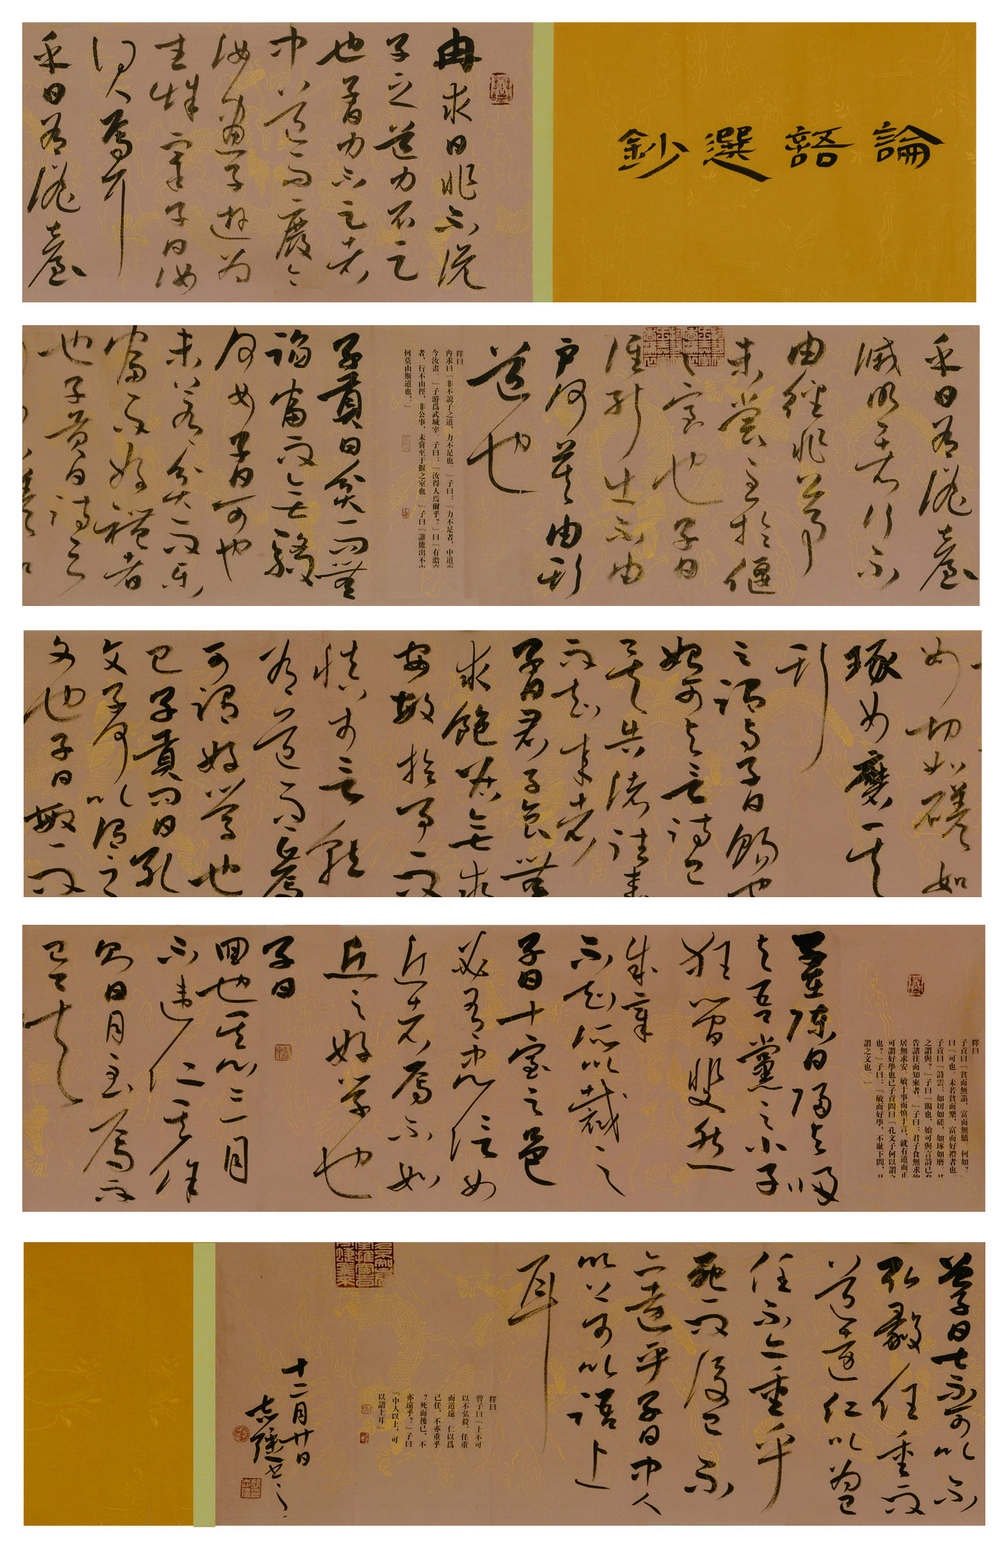 論語選鈔
冉求曰非不說
子之道力不足
也子曰力不足者
中道而廢今
汝畫子游為
武城宰子曰汝
得人焉耳
乎曰有澹臺
乎曰有澹臺
滅明者行不
由徑非公事
未嘗至於偃
之室也子曰
誰能出不由
戶何莫由斯
道也
釋曰
冉求曰「非不說子之道,力不足也。」子曰:「力不足者,中道
今汝畫。」子游爲武城宰。子曰:「汝得人焉爾乎?」曰「有澹
者,行不由徑,非公事,未嘗至于偃之室也。」子曰「誰能出不
何莫由斯道也。」
子貢曰貧而無
諂富而無驕
何如子曰可也
未若貧而樂
富而好禮者
也子貢曰詩云
如切如磋如
琢如磨其
斯
之謂與子曰賜也
始可與言詩已
矣告諸往
而知來者
子曰君子食無
求飽居無求
安敏於事而
慎於言就
有道而正焉
可謂好學也
已子貢問曰孔
文子何以謂之
文也子曰敏而
釋曰
子貢曰「貧而無諂,富而無驕,何如?」
曰「可也。未若貧而樂,富而好禮者也
子貢曰「詩雲:如切如磋,如琢如磨,其
之謂與?」子曰「賜也,始可與言詩已矣
告諸往而知來者。」子曰:「君子食無求飽
居無求安,敏于事而慎于言,就有道而正
可謂好學也已子貢問曰「孔文子何以謂之
也?」子曰:「敏而好學,不恥下問,是
謂之文也。」
子在陳曰歸與歸
與吾黨之小子
狂簡斐然
成章
不知所以裁之
子曰十室之邑
必有忠信如
丘者焉不如
丘之好學也
子曰
回也其心三月
不違仁其餘
則日月至焉而
已矣
曾子曰士不可以不
弘毅任重而
道遠仁以為己
任不亦重乎
死而後已不
亦遠乎子曰中人
以上可以語上
耳
釋曰
曾子曰「士不可
以不弘毅,任重
而道遠。仁以爲
己任,不亦重乎
?死而後已,不
亦遠乎?」子曰
「中人以上,可
以語上耳」
十二月廿日